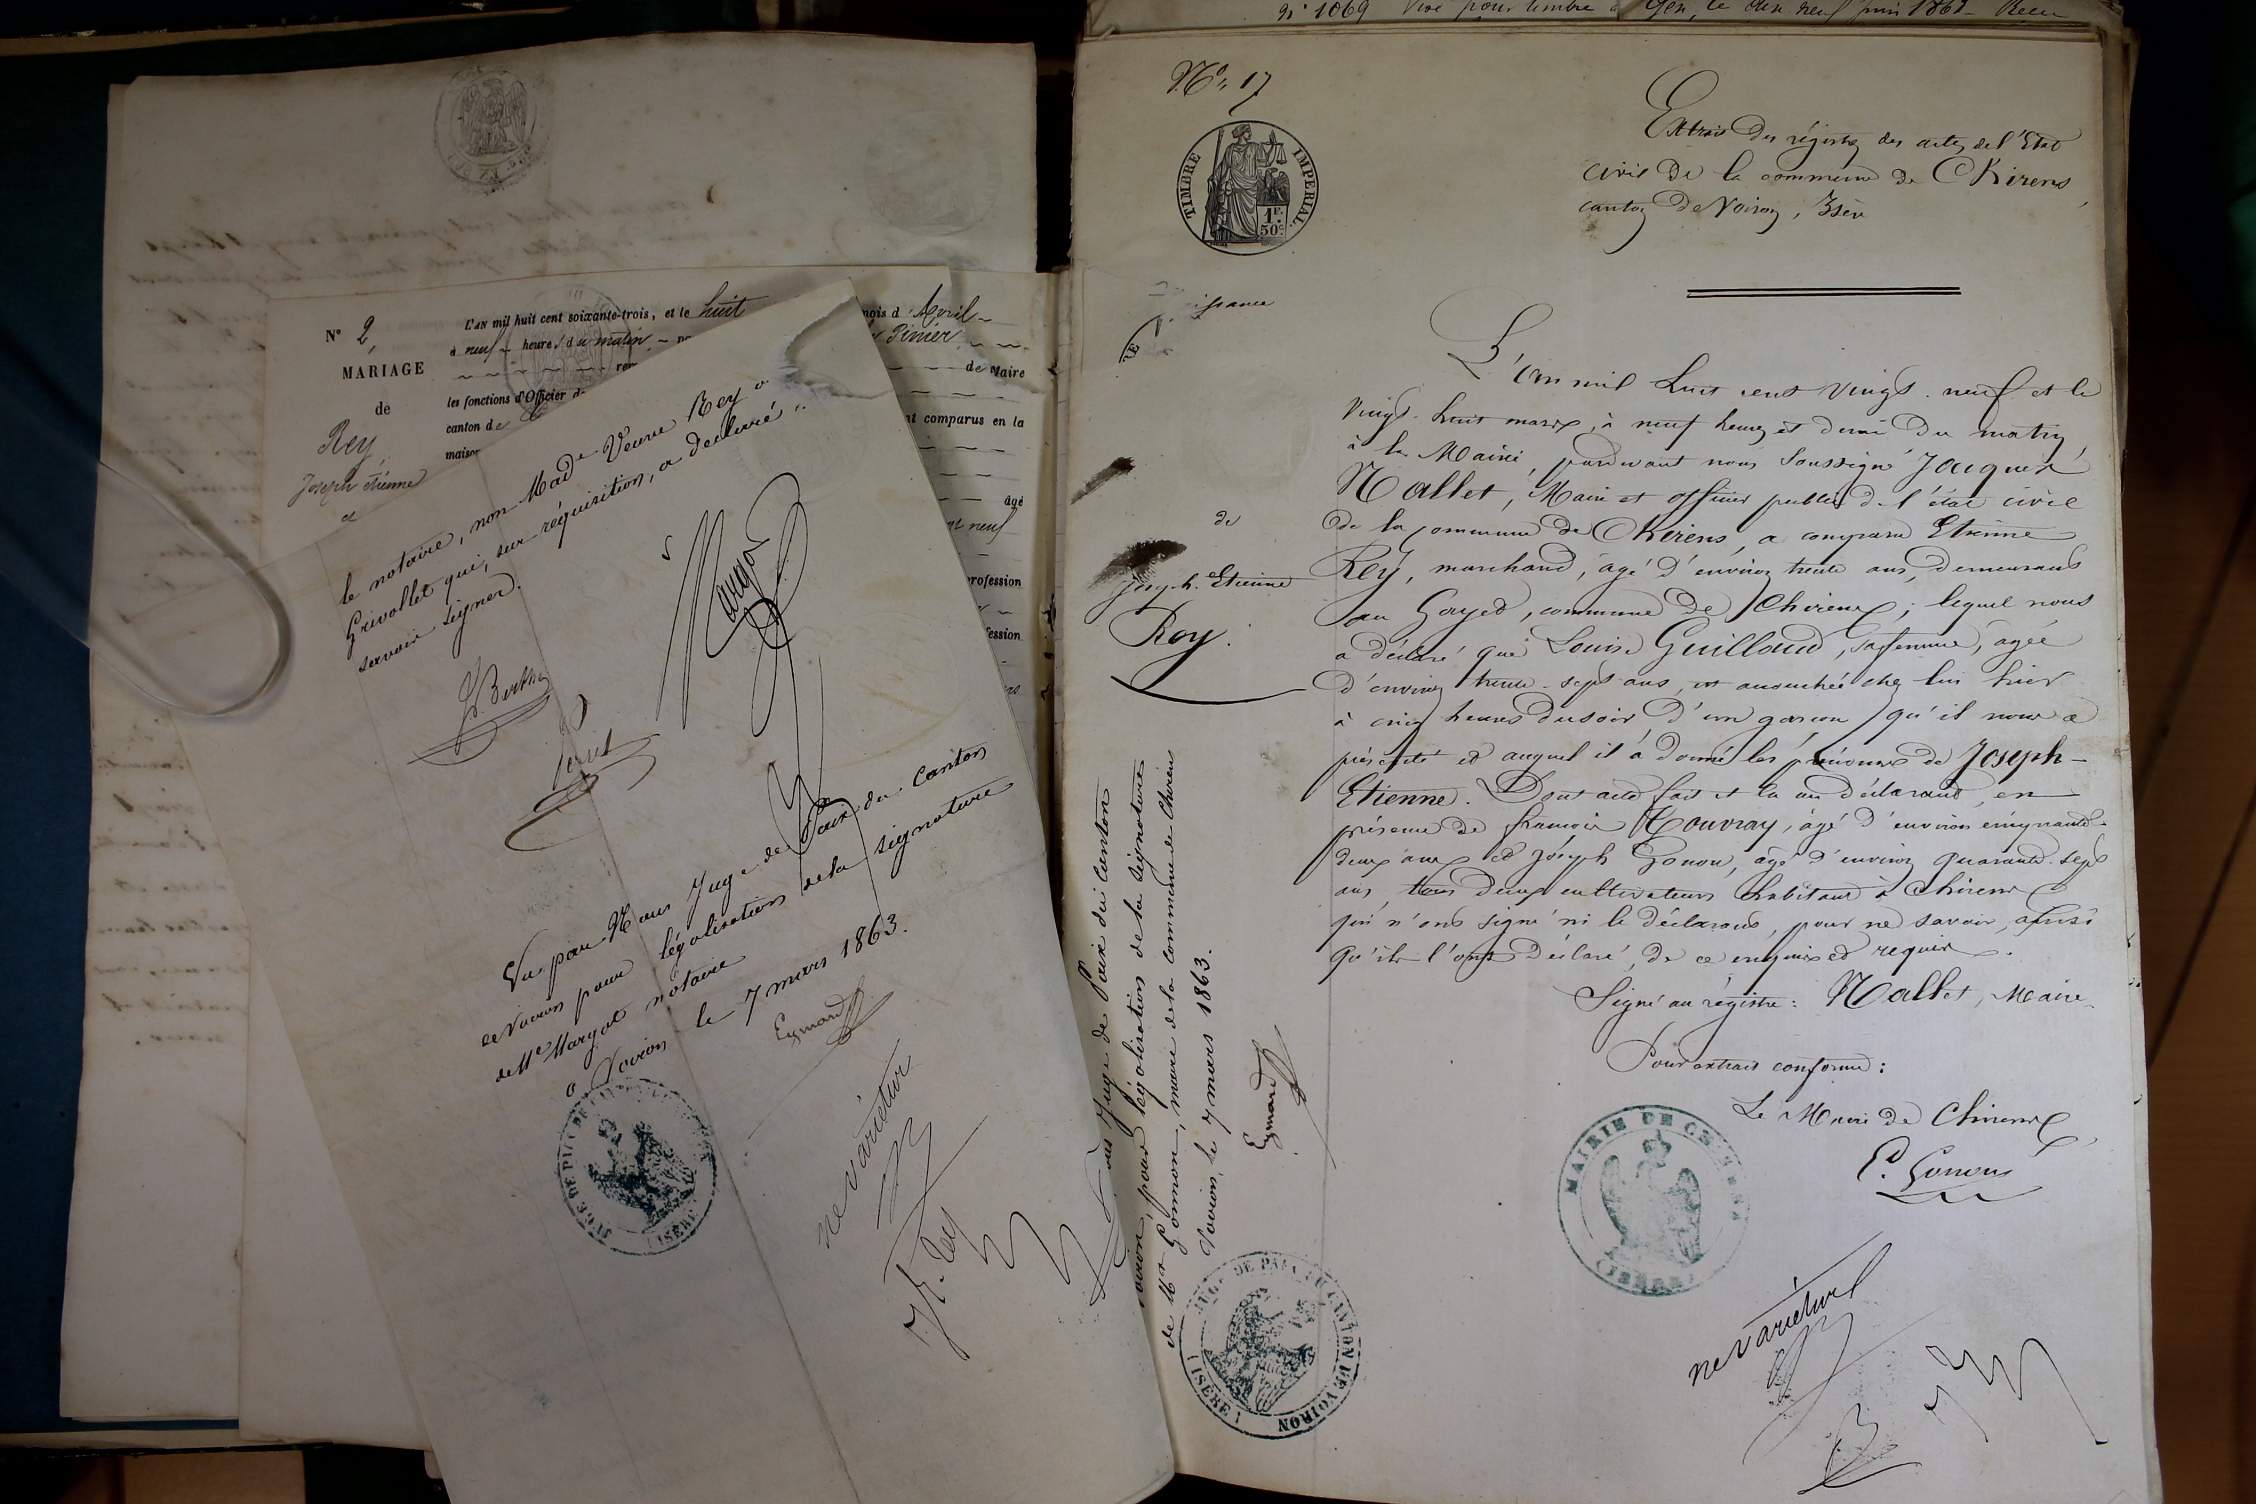 N° 1069 Visé pour timbre à Gex, le dix neuf juin 1863 Reçu
N° 2
MARIAGE
de
Rey
Joseph Etienne
et
L'AN mil huit cent soixante-trois, et le huit
mois d Avril
à neuf heures du matin
Pinier
de Maire
les fonctions d'Officier de
canton de
nt comparus en la
maison
âgé
nt neuf
profession
fession
le notaire, non Made Veuve Rey
Grivollet qui, sur réquisition, a déclaré
savoir signer.
Margot
Vu par Nous Juge de Paix du Canton
de Voiron pour légalisation de la signature
de Me Margot notaire
à Voiron le 7 mars 1863.
Eymard
JUGE DE PAIX DE
(ISÈRE)
ne varietur
J. Rey
N° 17
TIMBRE IMPERIAL
1F.
50C.
Extrait des régistres des actes de l'Etat
civil de la commune de Chirens,
canton de Voiron, Isère
issance
de
Joseph-Etienne
Rey.
L'an mil huit cent vingt-neuf et le
vingt-huit mars, à neuf heures et demi du matin,
à la Mairie, pardevant nous soussigné Jacques
Nallet, Maire et officier public de l'état civil
de la commune de Chirens, a comparu Etienne
Rey, marchand, âgé d'environ trente ans, demeurant
au Gayet, commune de Chirens; lequel nous
a déclaré que Louise Guilloud, sa femme, âgée
d'environ trente-sept ans, est accouchée chez lui hier
à cinq heures du soir d'un garçon qu'il nous a
présenté et auquel il a donné les prénoms de Joseph-
Etienne. Dont acte fait et lu au déclarant, en
présence de françois Touvray, âgé d'environ cinquante-
deux ans et Joseph Gonon, âgé d'environ quarante-sept
ans, tous deux cultivateurs habitant à Chirens
qui n'ont signé ni le déclarant, pour ne savoir, ainsi
qu'ils l'ont déclaré, de ce enquis et requis.
Signé au régistre: Nallet, Maire.
Pour extrait conforme:
Le Maire de Chirens,
MAIRIE DE CHIRENS
(ISÈRE)
ne varietur
ous Juge de Paix du Canton
Voiron, pour légalisation de la signature
de Mr Gonnon, maire de la commune de Chirens
Voiron, le 7 mars 1863.
Eymard
JUGE DE PAIX DU CANTON DE VOIRON
(ISÈRE)